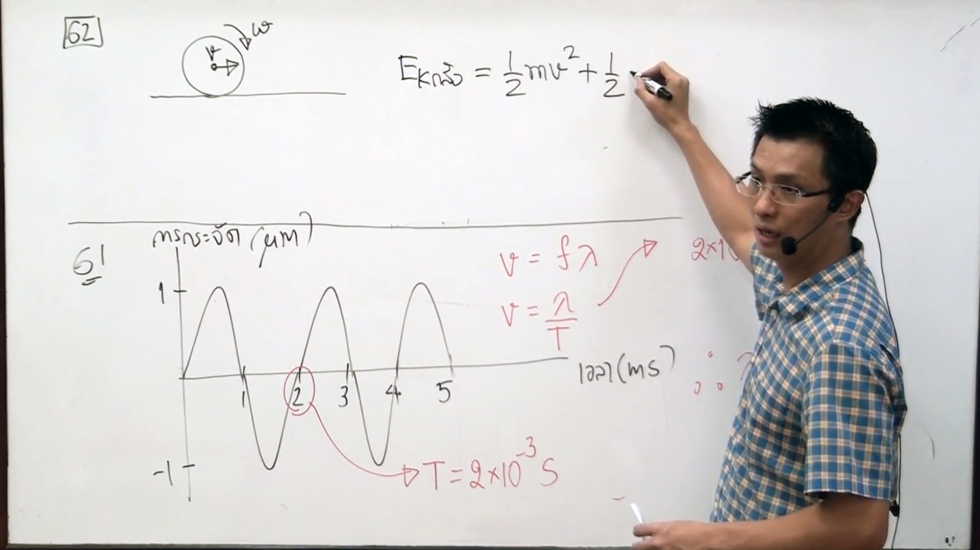 62
v ω
Eₖกลิ้ง = 1/2 mv² + 1/2
61
การกระจัด (μm)
1
-1
1 2 3 4 5
เวลา (ms)
v = fλ
v = λ/T
2×10
∴
T = 2×10⁻³ S